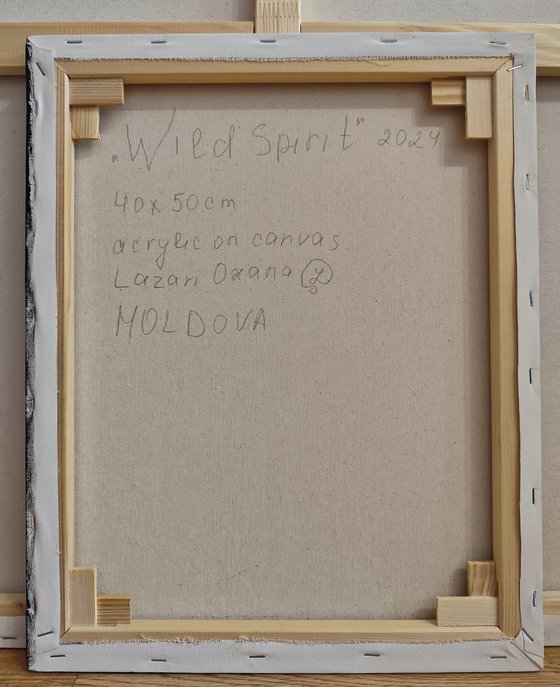 „Wild Spirit“ 2024
40x50cm
acrylic on canvas
Lazari Oxana
MOLDOVA